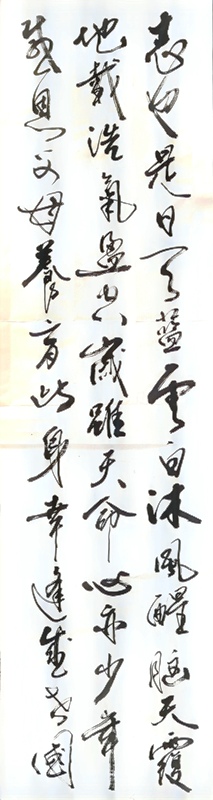 志也是日天藍雲白沐風醒腦天覆
地載浩氣盈歲雖天命心亦少年
感恩父母養育此身幸逢盛世國